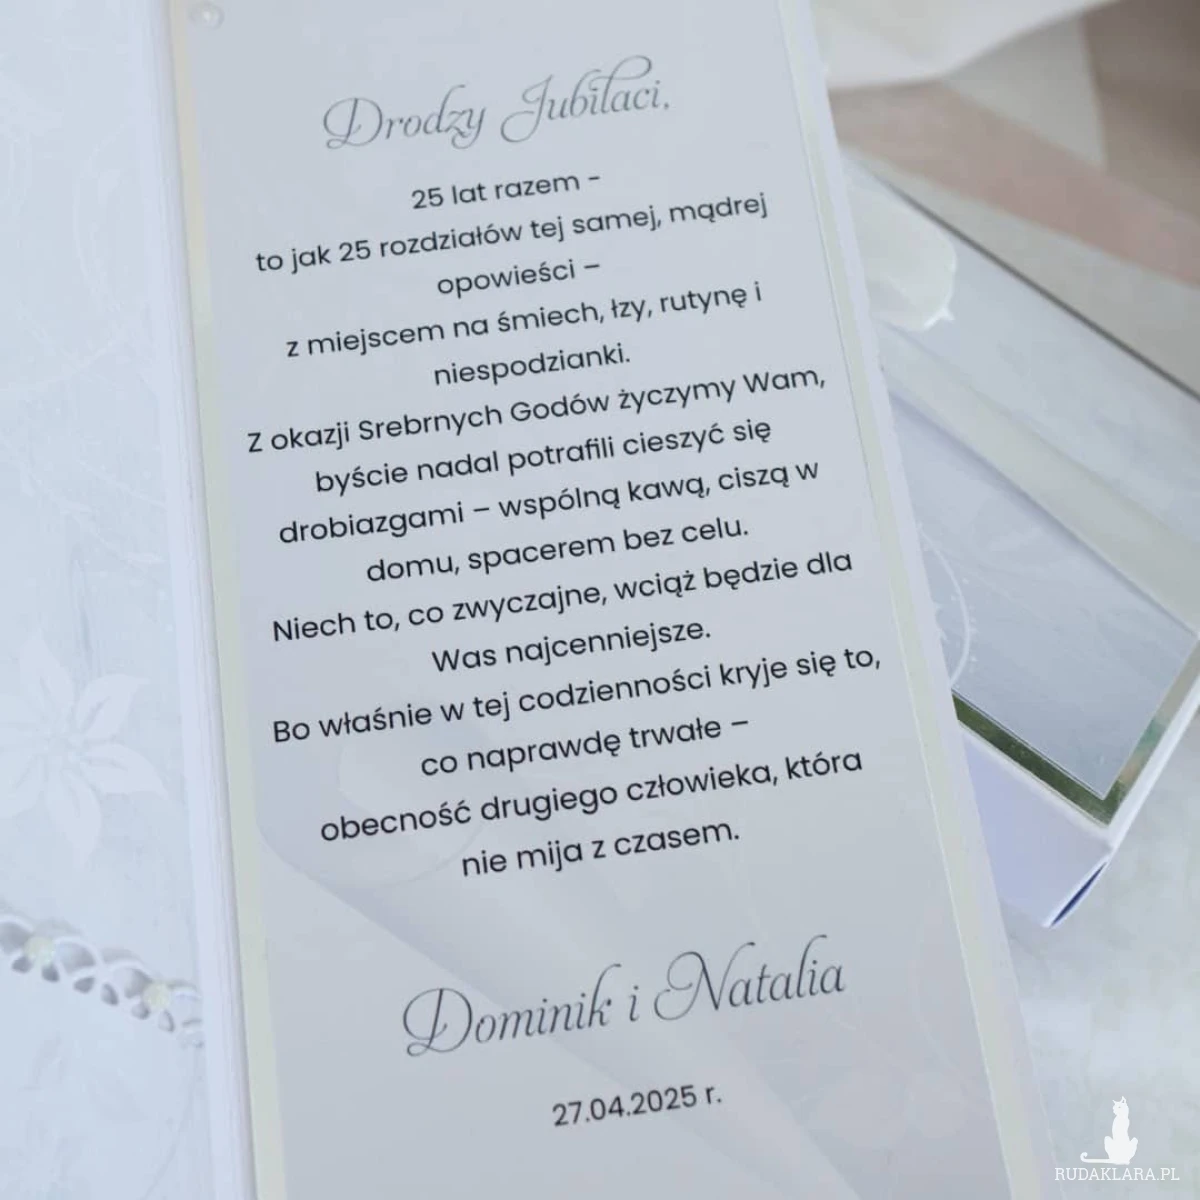 Drodzy Jubilaci,
25 lat razem -
to jak 25 rozdziałów tej samej, mądrej
opowieści –
z miejscem na śmiech, łzy, rutynę i
niespodzianki.
Z okazji Srebrnych Godów życzymy Wam,
byście nadal potrafili cieszyć się
drobiazgami – wspólną kawą, ciszą w
domu, spacerem bez celu.
Niech to, co zwyczajne, wciąż będzie dla
Was najcenniejsze.
Bo właśnie w tej codzienności kryje się to,
co naprawdę trwałe –
obecność drugiego człowieka, która
nie mija z czasem.
Dominik i Natalia
27.04.2025 r.
RUDAKLARA.PL